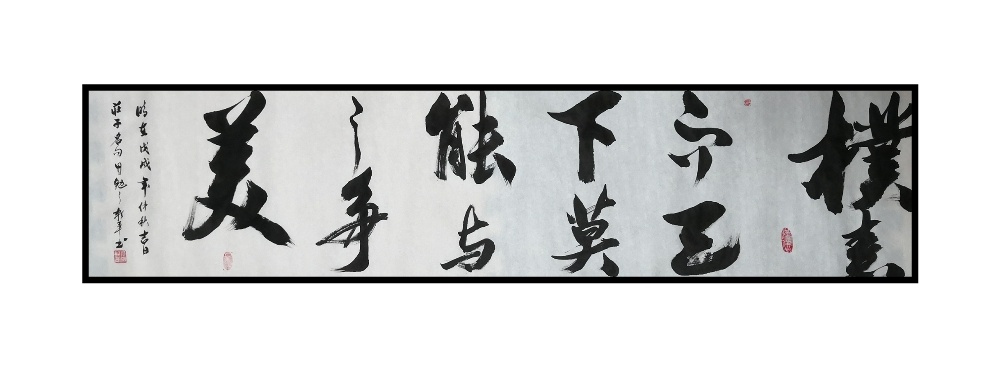 樸素
而天
下莫
能与
之争
美
時在戊戌年仲秋吉日
莊子名句